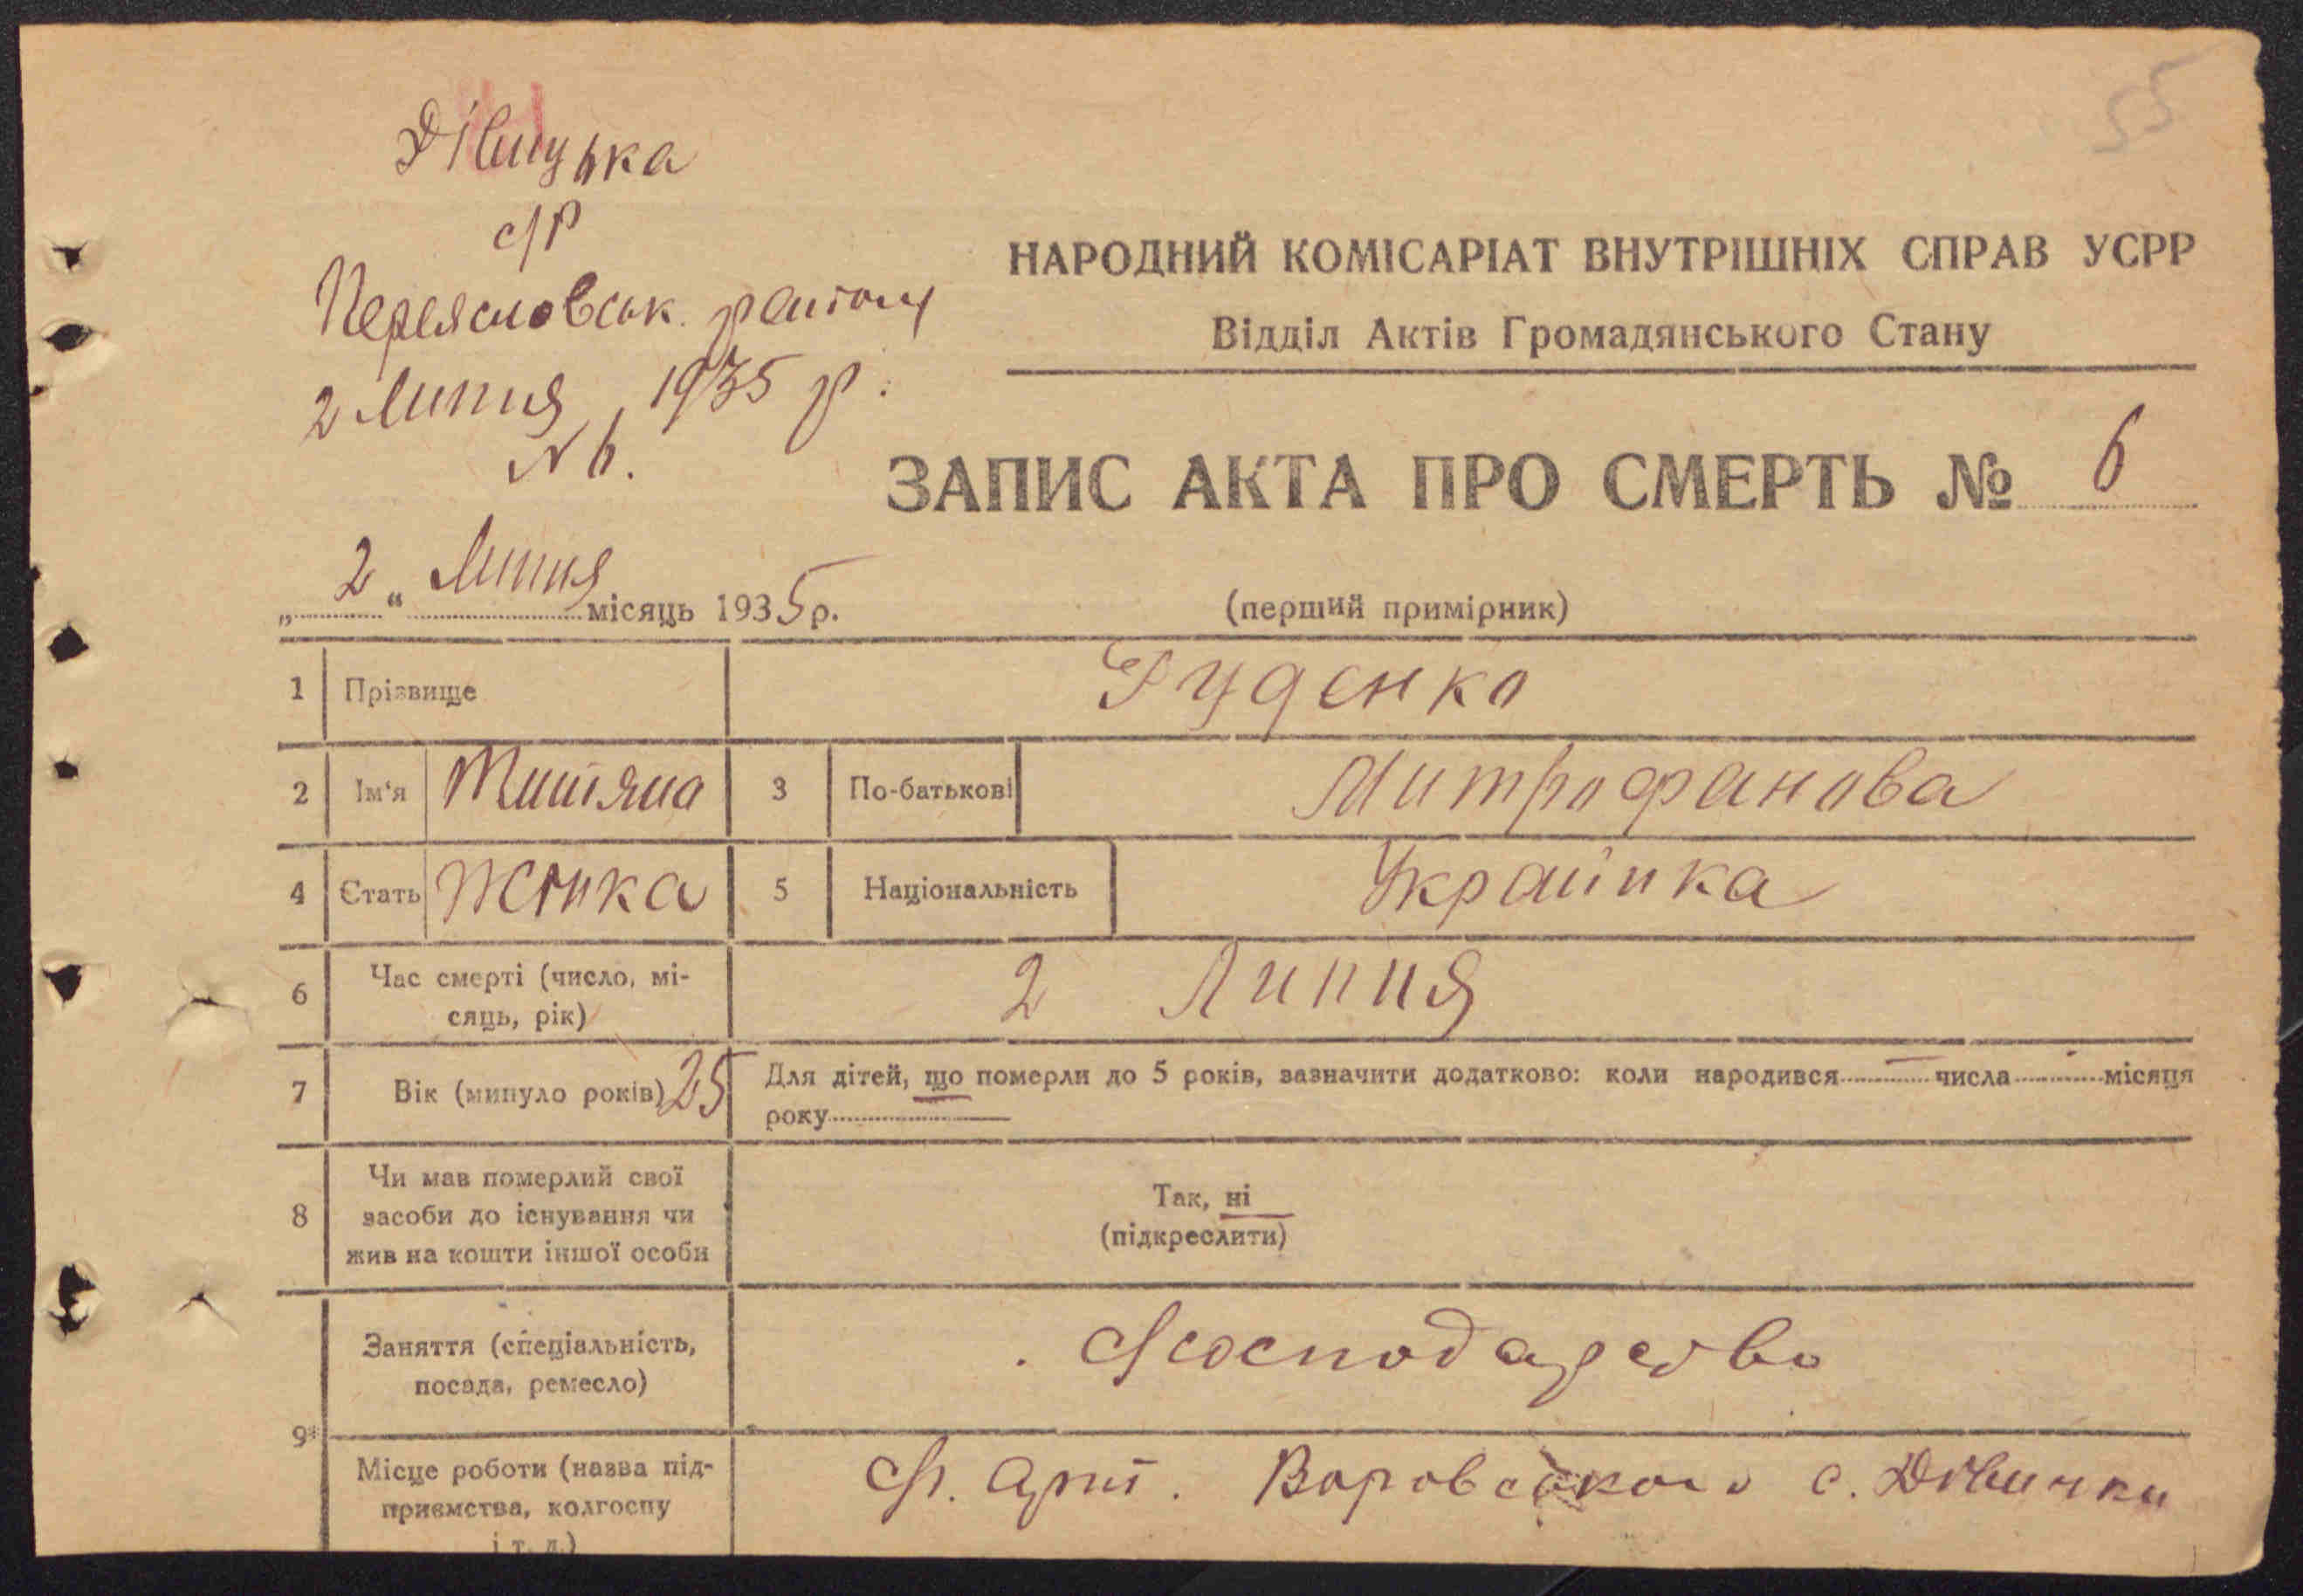 55
Дівицька
с/р
Переясловськ. району
2 Липня 1935 р.
N 6.
НАРОДНИЙ КОМІСАРІАТ ВНУТРІШНІХ СПРАВ УСРР
Відділ Актів Громадянського Стану
ЗАПИС АКТА ПРО СМЕРТЬ № 6
„ 2 “ Липня місяць 1935 р.
(перший примірник)
1 Прізвище Руденко
2 Ім'я Титяна 3 По-батькові Митрофанова
4 Стать Жінка 5 Національність Українка
6 Час смерті (число, мі-
сяць, рік) 2 Липня
7 Вік (минуло років) 25 Для дітей, що померли до 5 років, зазначити додатково: коли народився числа місяця
року
8 Чи мав померлий свої
засоби до існування чи
жив на кошти іншої особи
Так, ні
(підкреслити)
9* Заняття (спеціальність,
посада, ремесло) С/господарство
Місце роботи (назва під-
приємства, колгоспу
і т. д.) С/г. Арт. Воровського с. Дівички